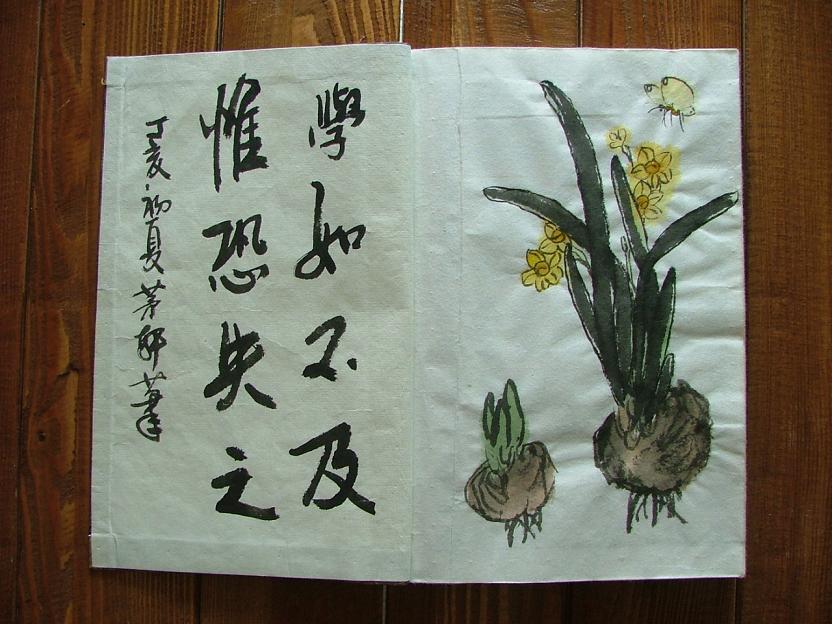 學如不及
惟恐失之
丁亥初夏茅軒筆